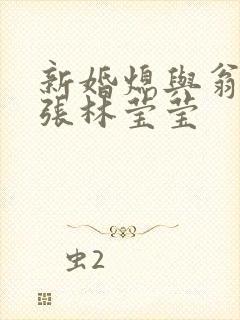 新婚熄與翁
張林莹莹
虫2